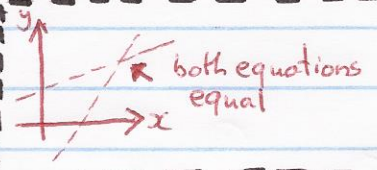 y
both equations
equal
x